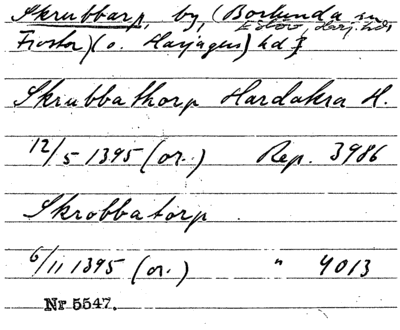 Skrubbarp, by, (Borlunda sn
Eslöv, Harj. hds
Frosta) (o. Harjagers) hd }
Skrubbathorp Hardakra H.
12/5 1395 (or.) Rep. 3986
Skrobbatorp
6/11 1395 (or.) " 4013
Nr 5547.